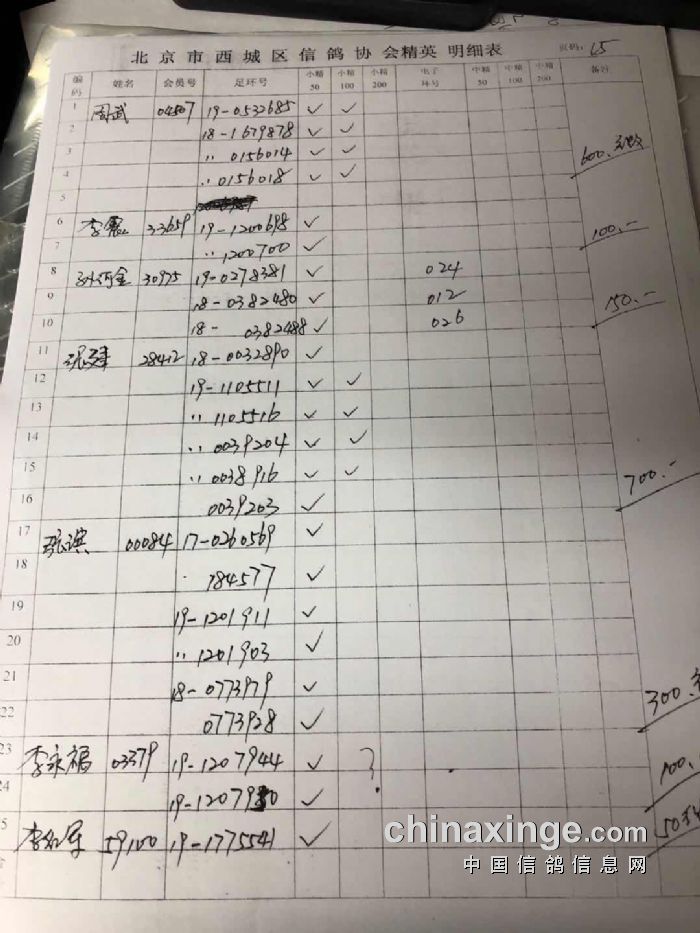 北京市西城区信鸽协会精英 明细表 页码: 65
编码 姓名 会员号 足环号 小精50 小精100 小精200 电子环号 中精50 中精100 中精200 备注
1 周武 04507 19-0532685 ✓ ✓
2 18-1679878 ✓ ✓
3 〃 0156014 ✓ ✓
4 〃 0156018 ✓ ✓ 600.
5
6 李 33659 19-1200698 ✓
7 〃 1200700 ✓ 100.-
8 孙河金 30975 19-0278381 ✓ 024
9 18-0382480 ✓ 012
10 18- 0382488 ✓ 026 150.-
11 28412 18-0032890 ✓
12 19-1105511 ✓ ✓
13 〃 1105516 ✓ ✓
14 〃 0039204 ✓ ✓
15 〃 0038916 ✓ ✓
16 0039203 ✓ 700.-
17 00084 17-0260569 ✓
18 184577 ✓
19 19-1201911 ✓
20 〃 1201903 ✓
21 18-0773979 ✓
22 0773928 ✓ 300.
23 李永福 03379 19-1207944 ✓ ?
24 19-1207980 ✓ 100.
李 59100 19-1775541 ✓ 50
chinaxinge.com
中国信鸽信息网